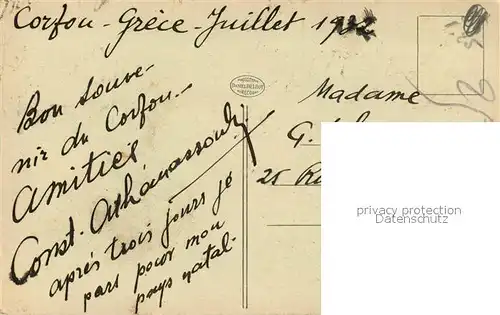 Corfou - Grèce - Juillet 1932
Bon souve-
nir du Corfou.-
Amitiés
Const. Athanassouly
après trois jours je
pars pour mon
pays natal-
Madame
G.
25
privacy protection
www.oldthing.com